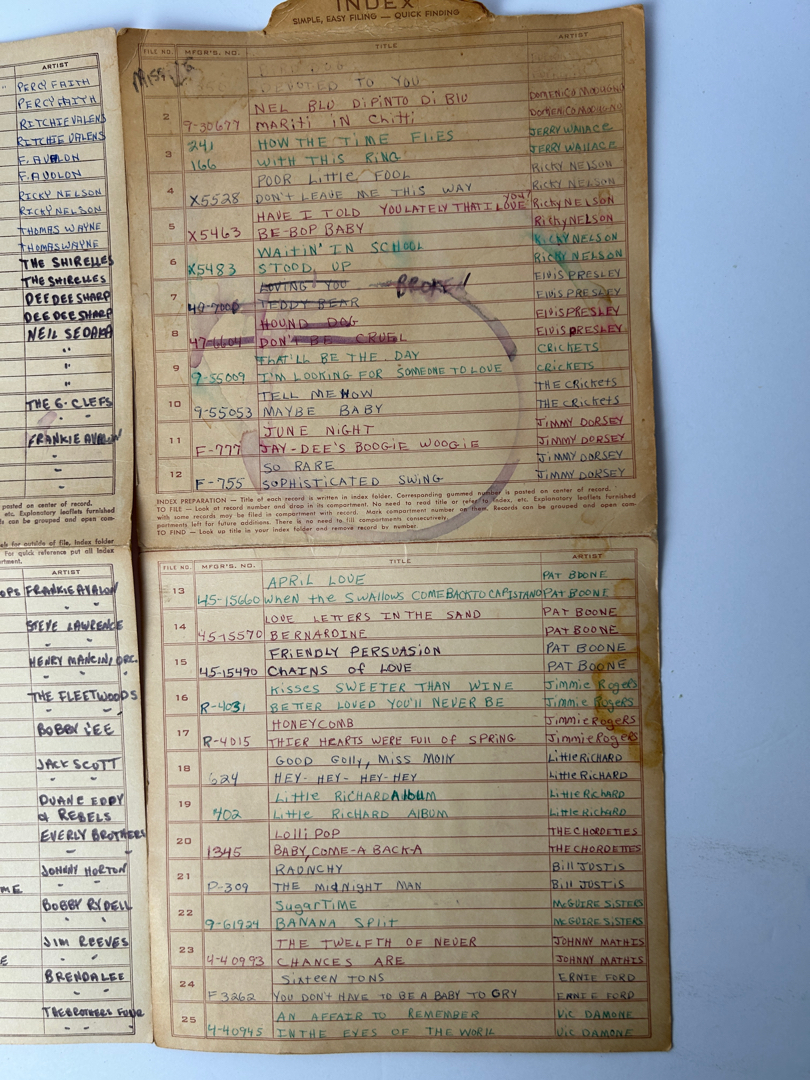 INDEX
SIMPLE, EASY FILING — QUICK FINDING
ARTIST
PERCY FAITH
PERCY FAITH
RITCHIE VALENS
RITCHIE VALENS
F. AVALON
F. AVOLON
RICKY NELSON
RICKY NELSON
THOMAS WAYNE
THOMAS WAYNE
THE SHIRELLES
THE SHIRELLES
DEE DEE SHARP
DEE DEE SHARP
NEIL SEDAKA
"
"
"
THE G-CLEFS
" "
FRANKIE AVALON
"
"
posted on center of record.
etc. Explanatory leaflets furnished
s can be grouped and open com-
els for outside of file, Index folder
For quick reference put all Index
rtment.
ARTIST
OPS FRANKIE AVALON
" "
STEVE LAWRENCE
" "
HENRY MANCINI, ORC.
" "
THE FLEETWOODS
" "
BOBBY VEE
JACK SCOTT
" "
DUANE EDDY
& REBELS
EVERLY BROTHERS
" "
JOHNNY HORTON
ME " "
BOBBY RYDELL
" "
JIM REEVES
E " "
BRENDA LEE
" "
THE BROTHERS FOUR
" "
FILE NO. MFGR'S. NO. TITLE ARTIST
MISSING
DEVOTED TO YOU
NEL BLU DIPINTO Di BlU DOMENICO MODUGNO
2 9-30677 MARITI iN CHITTI DOMENICO MODUGNO
241 HOW THE TIME FLIES JERRY WALLACE
3 166 WITH THIS RING JERRY WALLACE
POOR LITTLE FOOL RICKY NELSON
4 X5528 DON'T LEAVE ME THIS WAY RICKY NELSON
HAVE I TOLD YOU LATELY THAT I LOVE YOU? RICKY NELSON
5 X5463 BE-BOP BABY RICKY NELSON
WAITIN' IN SCHOOL RICKY NELSON
6 X5483 STOOD UP RICKY NELSON
LOVING YOU BROKEN ElVIS PRESLEY
7 49-7000 TEDDY BEAR ElVIS PRESLEY
HOUND DOG ElVIS PRESLEY
8 47-6604 DON'T BE CRUEL ElVIS PRESLEY
THAT'LL BE THE DAY CRICKETS
9 9-55009 I'M LOOKING FOR SOMEONE TO LOVE CRICKETS
TELL ME HOW THE CRICKETS
10 9-55053 MAYBE BABY THE CRICKETS
JUNE NIGHT JIMMY DORSEY
11 F-777 JAY-DEE'S BOOGIE WOOGIE JIMMY DORSEY
SO RARE JIMMY DORSEY
12 F-755 SOPHISTICATED SWING JIMMY DORSEY
INDEX PREPARATION — Title of each record is written in index folder. Corresponding gummed number is posted on center of record.
TO FILE — Look at record number and drop in its compartment. No need to read title or refer to index, etc. Explanatory leaflets furnished
with some records may be filed in compartment with record. Mark compartment number on them. Records can be grouped and open com-
partments left for future additions. There is no need to fill compartments consecutively.
TO FIND — Look up title in your index folder and remove record by number.
FILE NO. MFGR'S. NO. TITLE ARTIST
APRIL LOVE PAT BOONE
13 45-15660 When the SWALLOWS COME BACK TO CAPISTANO PAT BOONE
LOVE LETTERS IN THE SAND PAT BOONE
14 45-15570 BERNARDINE PAT BOONE
FRIENDLY PERSUASION PAT BOONE
15 45-15490 CHAINS of LOVE PAT BOONE
KISSES SWEETER THAN WINE Jimmie Rogers
16 R-4031 BETTER LOVED YOU'LL NEVER BE Jimmie Rogers
HONEYCOMB Jimmie Rogers
17 R-4015 THIER HEARTS WERE FUll OF SPRING Jimmie Rogers
GOOD GOLLY, MISS MOLLY LittlE RICHARD
18 624 HEY-HEY-HEY-HEY LittlE RICHARD
LittlE RICHARD AlbUM LittlE RICHARD
19 402 LittlE RICHARD ALBUM LittlE Richard
LOLLI POP THE CHORDETTES
20 1345 BABY, COME-A BACK-A THE CHORDETTES
RAUNCHY Bill JUSTIS
21 P-309 THE MIDNIGHT MAN Bill JUSTIS
SugarTIME McGUIRE SISTERS
22 9-61924 BANANA SPlit McGUIRE SISTERS
THE TWELFTH OF NEVER JOHNNY MATHIS
23 4-40993 CHANCES ARE JOHNNY MATHIS
Sixteen TONS ERNIE FORD
24 F3262 YOU DON'T HAVE TO BE A BABY TO CRY ERNIE FORD
AN AFFAIR TO REMEMBER Vic DAMONE
25 4-40945 IN THE EYES OF THE WORLL Vic DAMONE